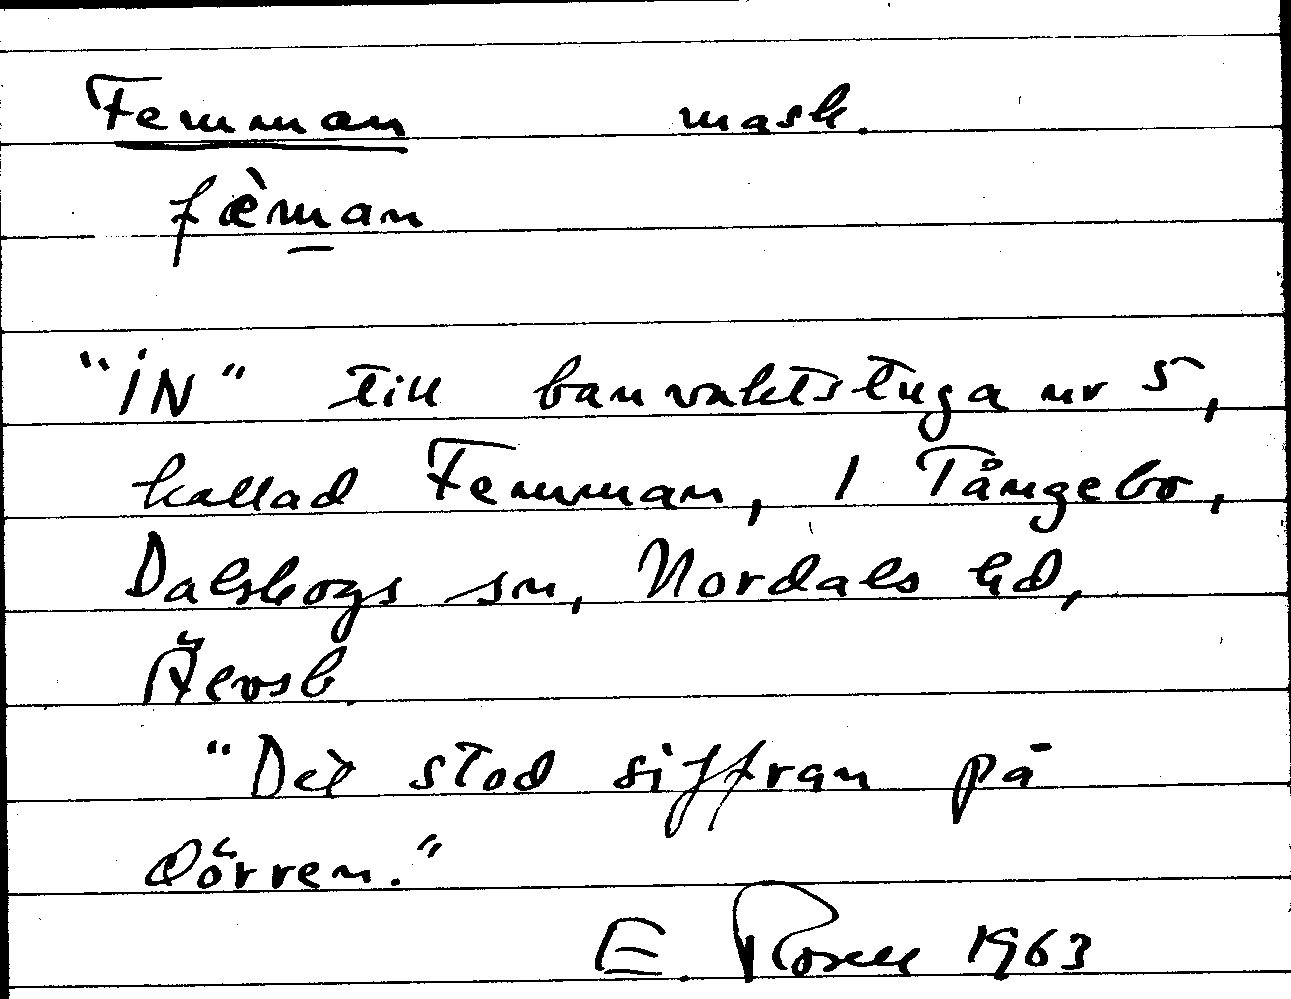 Femman mask.
fèman
"IN" till banvaktstuga nr 5,
kallad Femman, i Tångebo,
Dalskogs sn, Nordals hd,
Älvsb.
"Det stod siffran på
dörren."
E. Rosell 1963